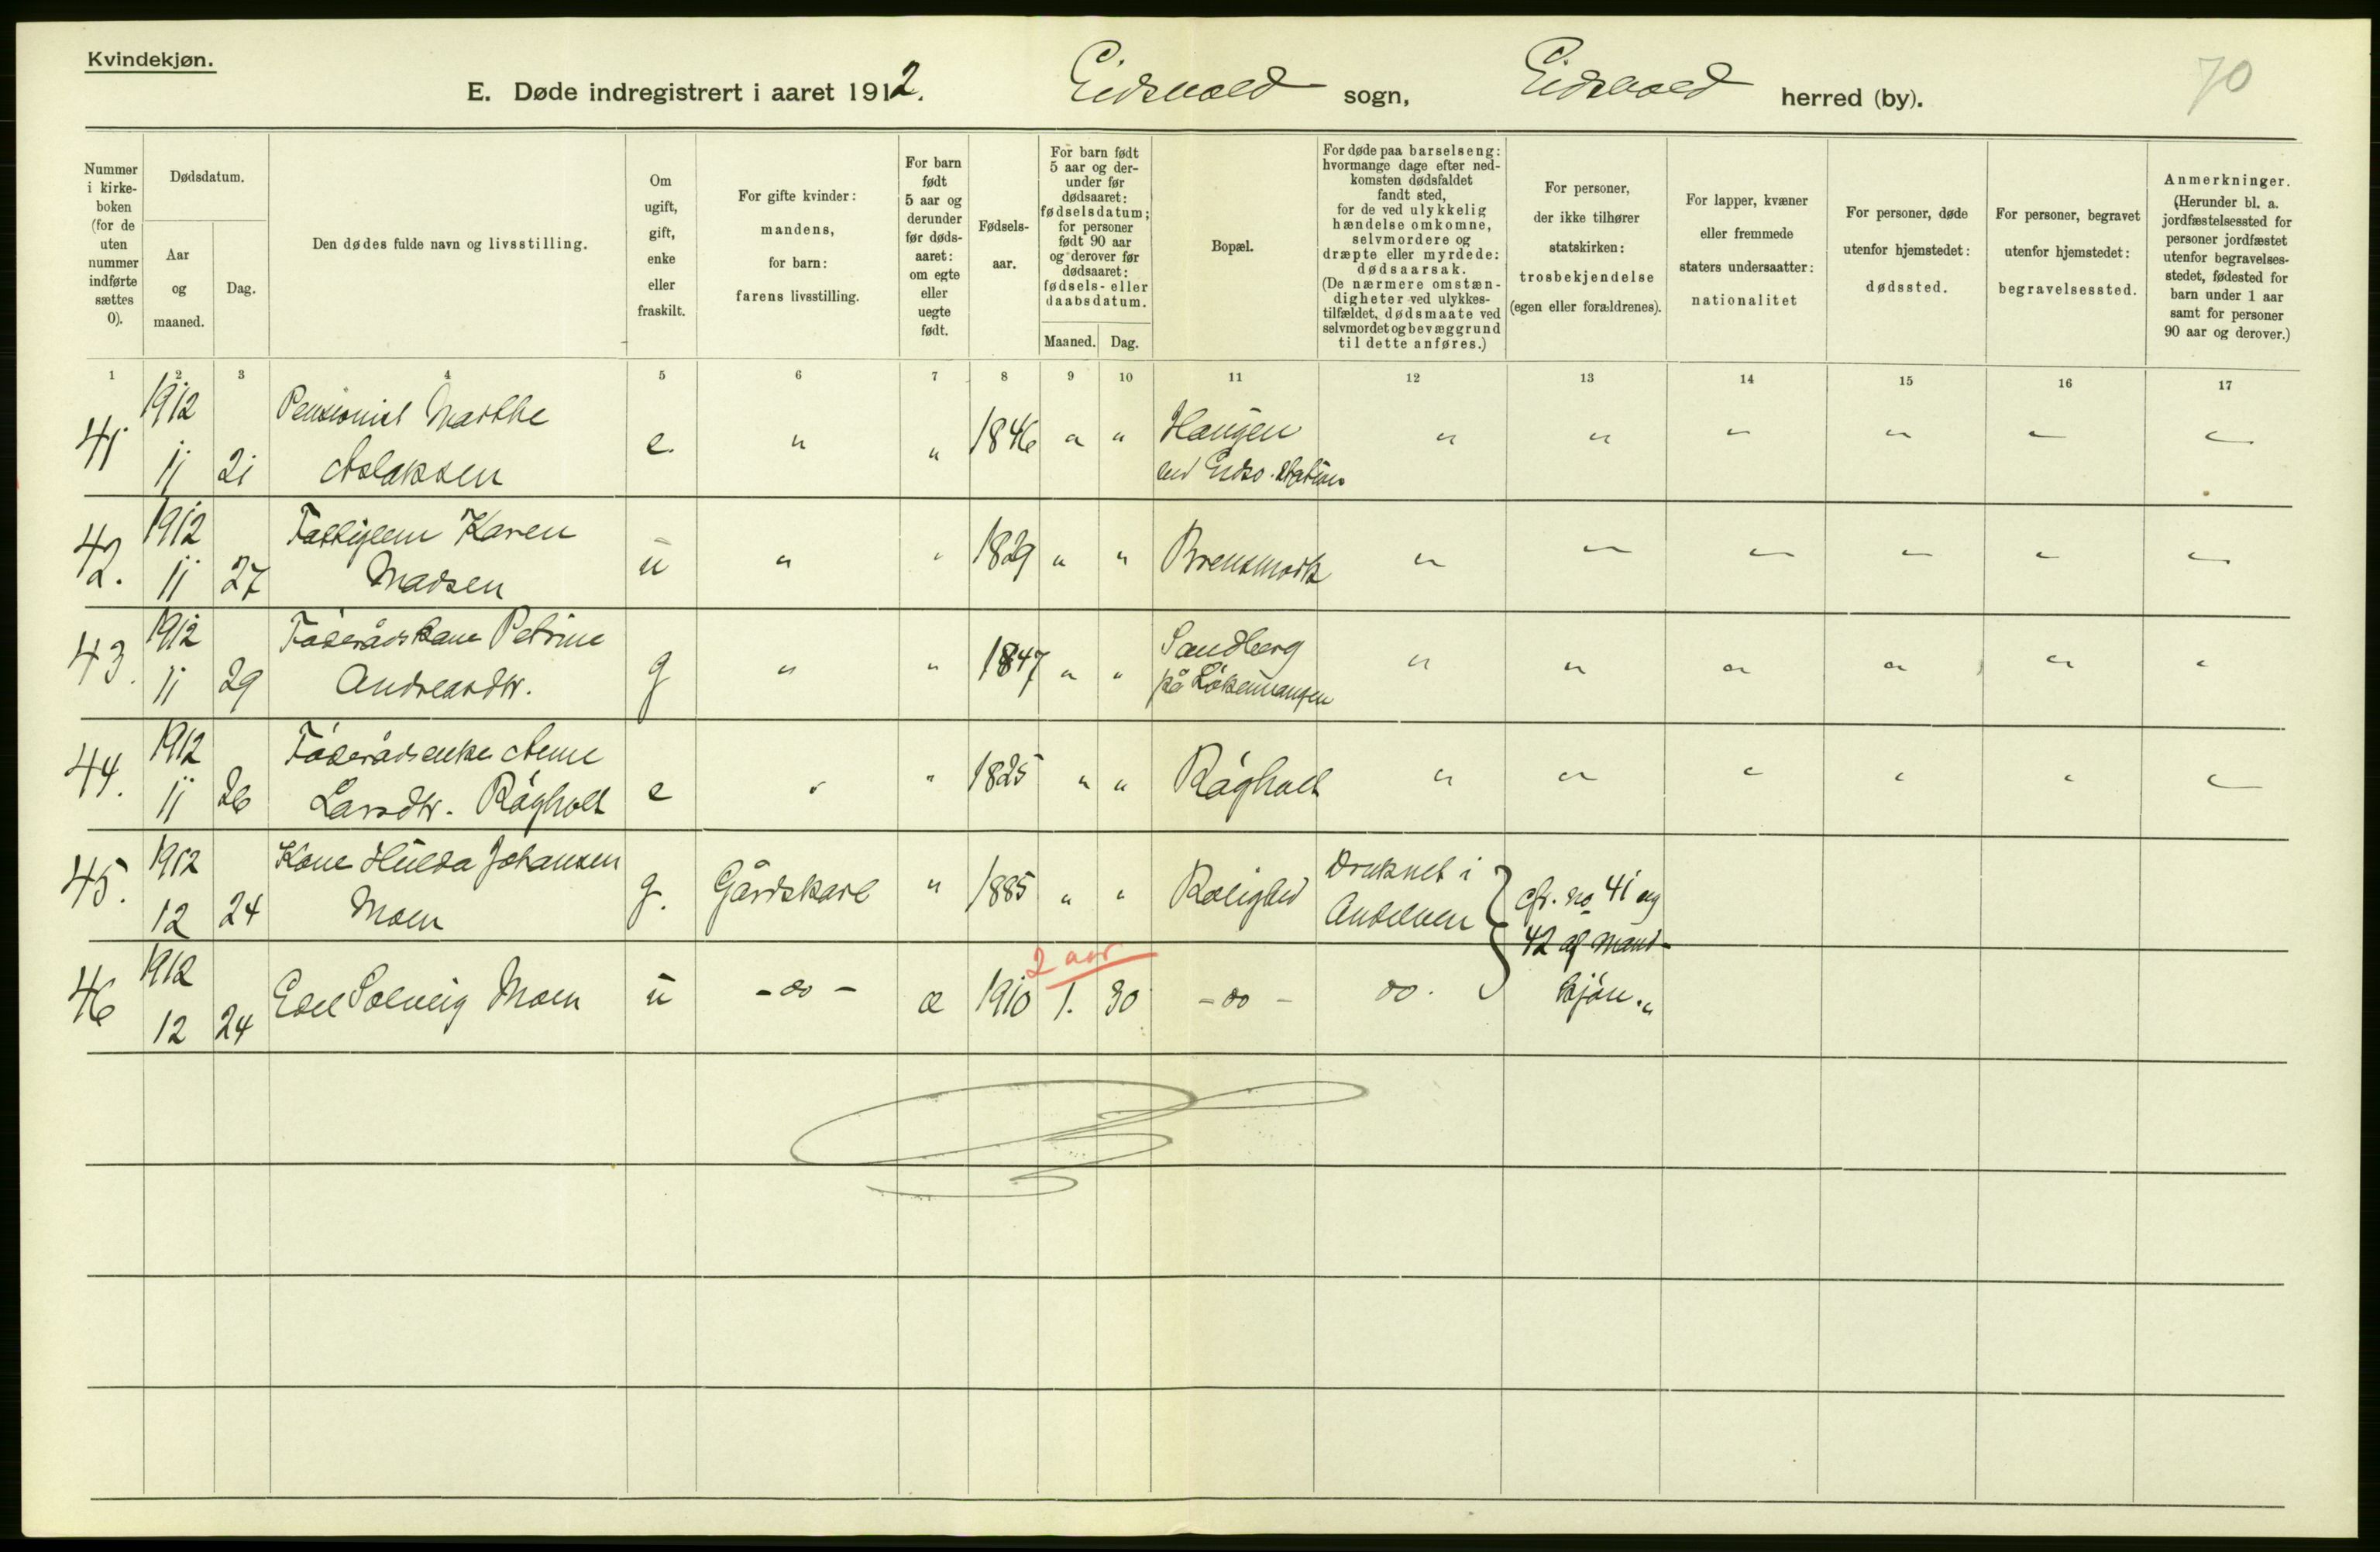 Kvindekjøn.
70
E. Døde indregistrert i aaret 1912. Eidsvold sogn, Eidsvold herred (by).
Nummer i kirkeboken (for de uten nummer indførte sættes 0).
Dødsdatum.
Aar og maaned.
Dag.
Den dødes fulde navn og livsstilling.
Om ugift, gift, enke eller fraskilt.
For gifte kvinder: mandens, for barn: farens livsstilling.
For barn født 5 aar og derunder før dødsaaret: om egte eller uegte født.
Fødselsaar.
For barn født 5 aar og derunder før dødsaaret: fødselsdatum; for personer født 90 aar og derover før dødsaaret: fødsels- eller daabsdatum.
Maaned. Dag.
Bopæl.
For døde paa barselseng: hvormange dage efter nedkomsten dødsfaldet fandt sted, for de ved ulykkelig hændelse omkomne, selvmordere og dræpte eller myrdede: dødsaarsak. (De nærmere omstændigheter ved ulykkestilfældet, dødsmaate ved selvmordet og bevæggrund til dette anføres.)
For personer, der ikke tilhører statskirken: trosbekjendelse (egen eller forældrenes).
For lapper, kvæner eller fremmede staters undersaatter: nationalitet
For personer, døde utenfor hjemstedet: dødssted.
For personer, begravet utenfor hjemstedet: begravelsessted.
Anmerkninger. (Herunder bl. a. jordfæstelsessted for personer jordfæstet utenfor begravelsesstedet, fødested for barn under 1 aar samt for personer 90 aar og derover.)
1 2 3 4 5 6 7 8 9 10 11 12 13 14 15 16 17
41 1912 11 21 Pensionist Marthe Aslaksen e. " " 1846 " " Haugen ved Eidsv. station " " " " " "
42. 1912 11 27 Fattiglem Karen Madsen u " " 1829 " " Brensmork " " " " " "
43. 1912 11 29 Føderådskone Petrine Andreasdtr. g " " 1847 " " Sandberg på Løkenmangen " " " " " "
44. 1912 11 26 Føderådsenke Anne Larsdtr. Rågholt e " " 1825 " " Rågholt " " " " " "
45. 1912 12 24 Kone Hulda Johansen Moen g. Gårdskarl " 1885 " " Rolighed Druknet i Andelven } cfr. no 41 og 42 af Mandkjøn. "
2 aar
46 1912 12 24 Edel Solveig Moen u - do - æ 1910 1. 30 - do - do.